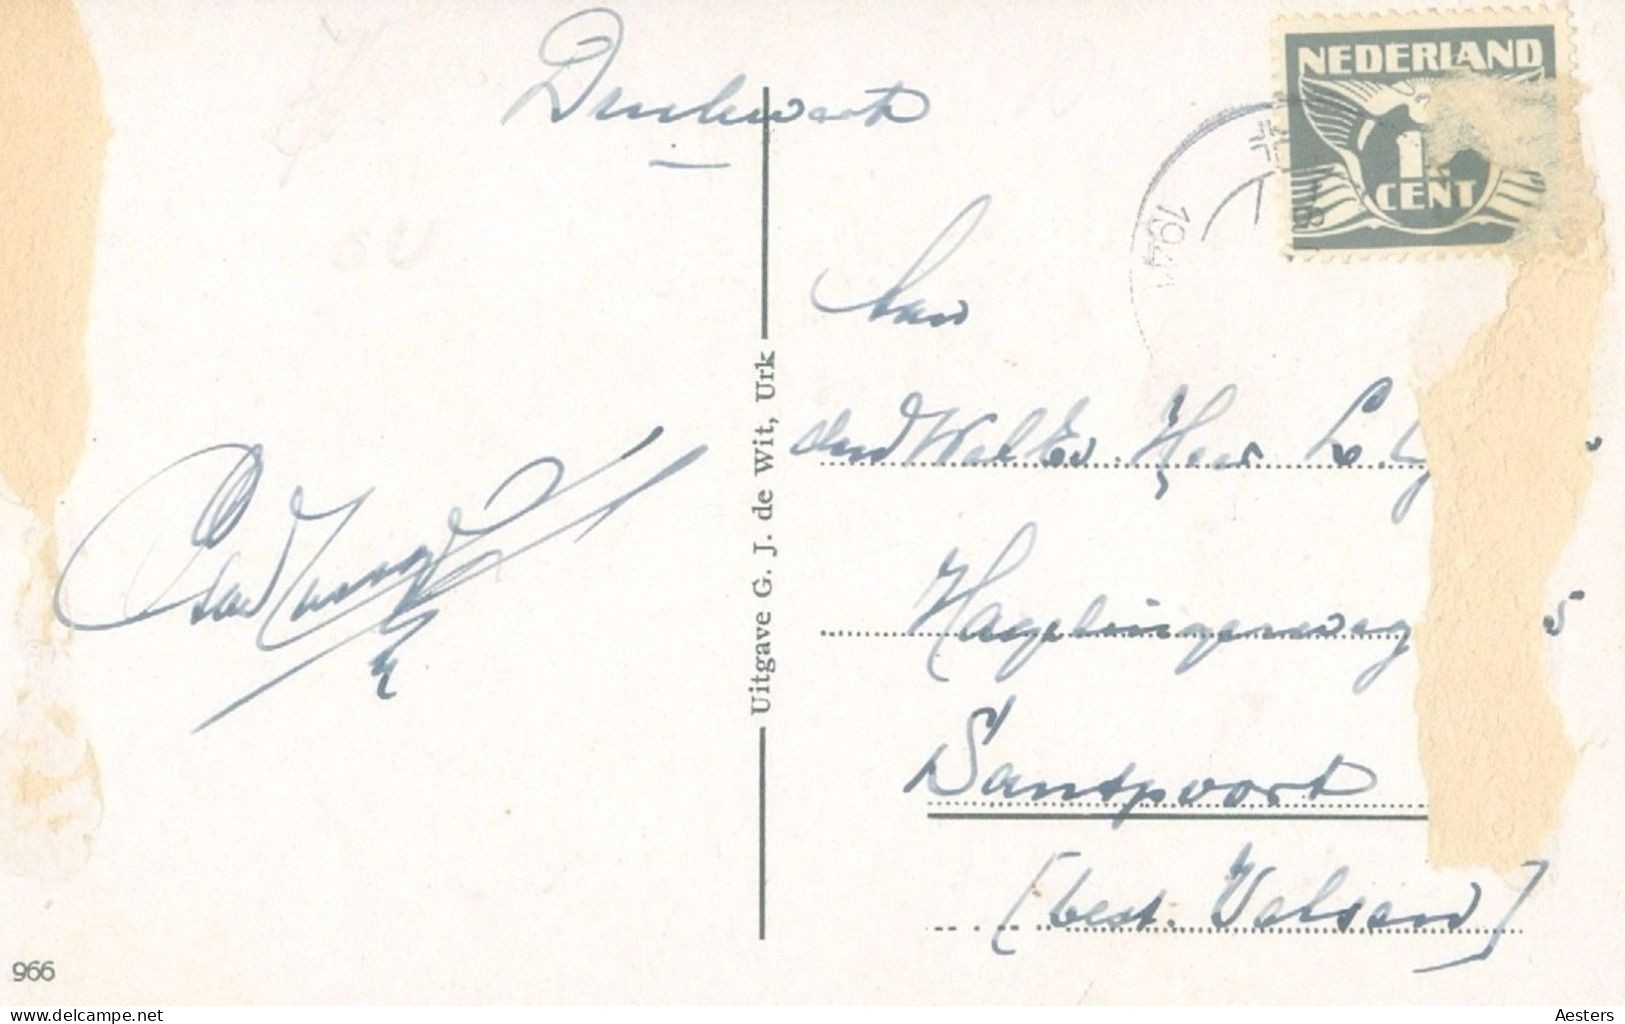 Drukwerk
NEDERLAND
1
CENT
1941
Aan
den WelEd. Heer L.
Hagelingerweg 5
Santpoort
(best. Velsen)
Uitgave G. J. de Wit, Urk
966
Aesters